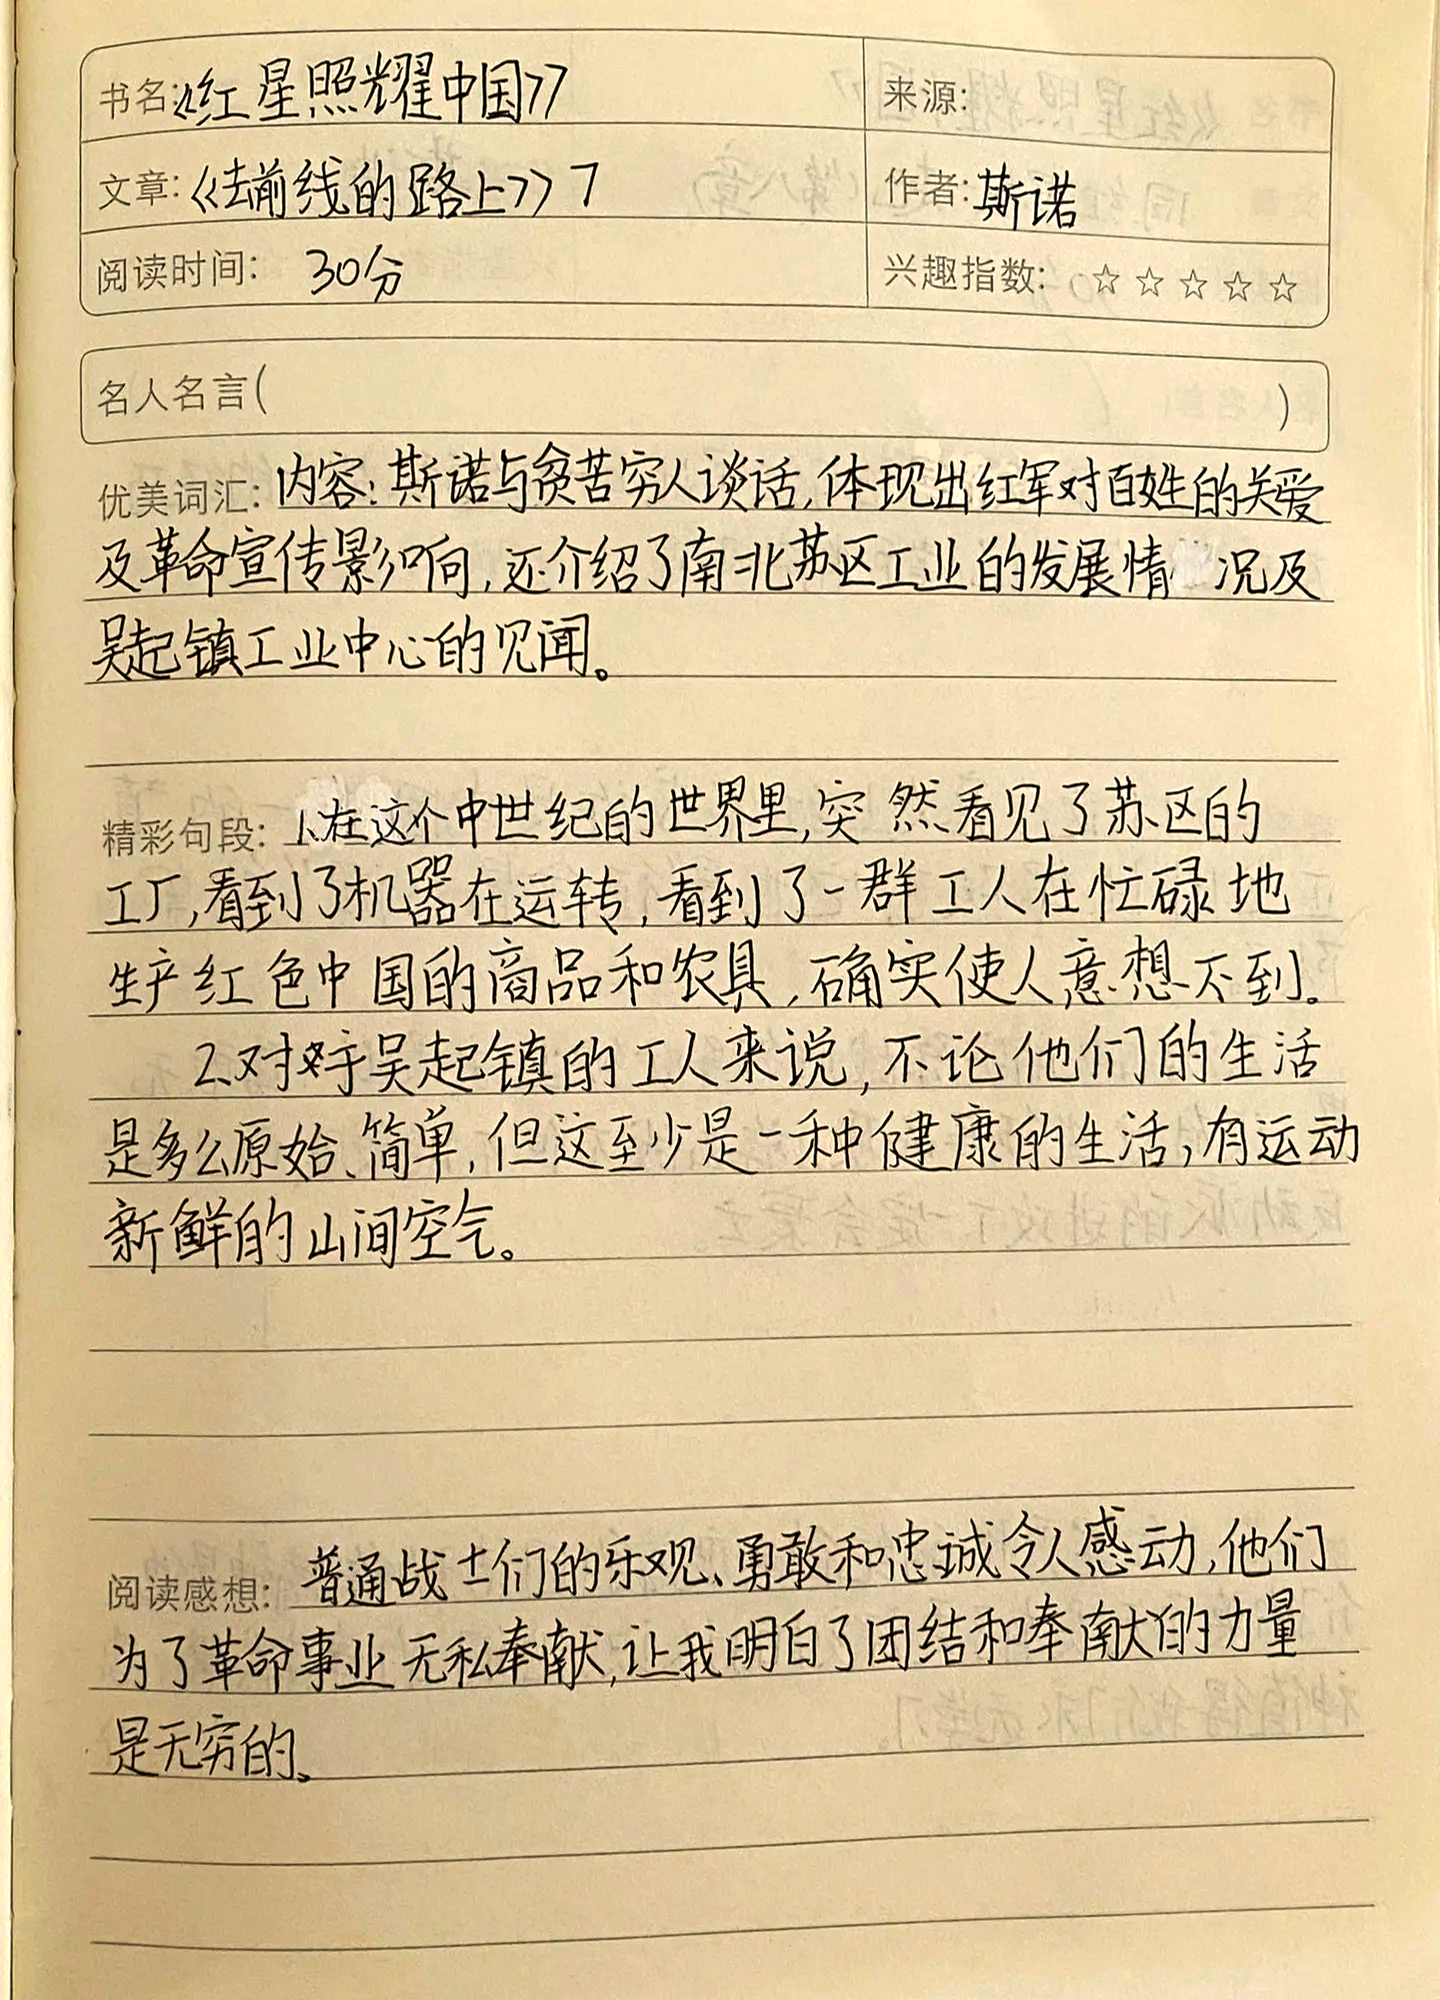 书名:《红星照耀中国》
来源:
文章:《去前线的路上》7
作者:斯诺
阅读时间: 30分
兴趣指数: ☆☆☆☆☆
名人名言( )
优美词汇: 内容:斯诺与贫苦穷人谈话,体现出红军对百姓的关爱
及革命宣传影响,还介绍了南北苏区工业的发展情 况及
吴起镇工业中心的见闻。
精彩句段: 1.在这个中世纪的世界里,突然看见了苏区的
工厂,看到了机器在运转,看到了一群工人在忙碌地
生产红色中国的商品和农具,确实使人意想不到。
2.对于吴起镇的工人来说,不论他们的生活
是多么原始、简单,但这至少是一种健康的生活,有运动
新鲜的山间空气。
阅读感想: 普通战士们的乐观、勇敢和忠诚令人感动,他们
为了革命事业无私奉献,让我明白了团结和奉献的力量
是无穷的。